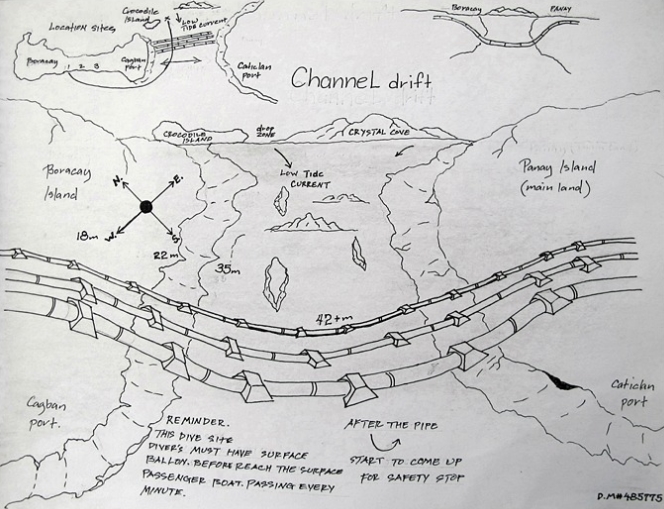 Crocodile
Island
LOW
TIDE current
LOCATION SITES
Boracay
1 2 3
Cagban
port
Caticlan
port
Boracay
PANAY
Channel drift
CROCODILE
ISLAND
drop
ZONE
CRYSTAL COVE
Boracay
Island
LOW TIDE
CURRENT
Panay Island
(main land)
N.
E.
W.
S.
18m
22m
35m
42+m
Cagban
port.
Caticlan
port
REMINDER.
THIS DIVE SITE
DIVER'S MUST HAVE SURFACE
BALLON. BEFORE REACH THE SURFACE
PASSENGER BOAT. PASSING EVERY
MINUTE.
AFTER THE PIPE
START TO COME UP
FOR SAFETY STOP
D.M#485775